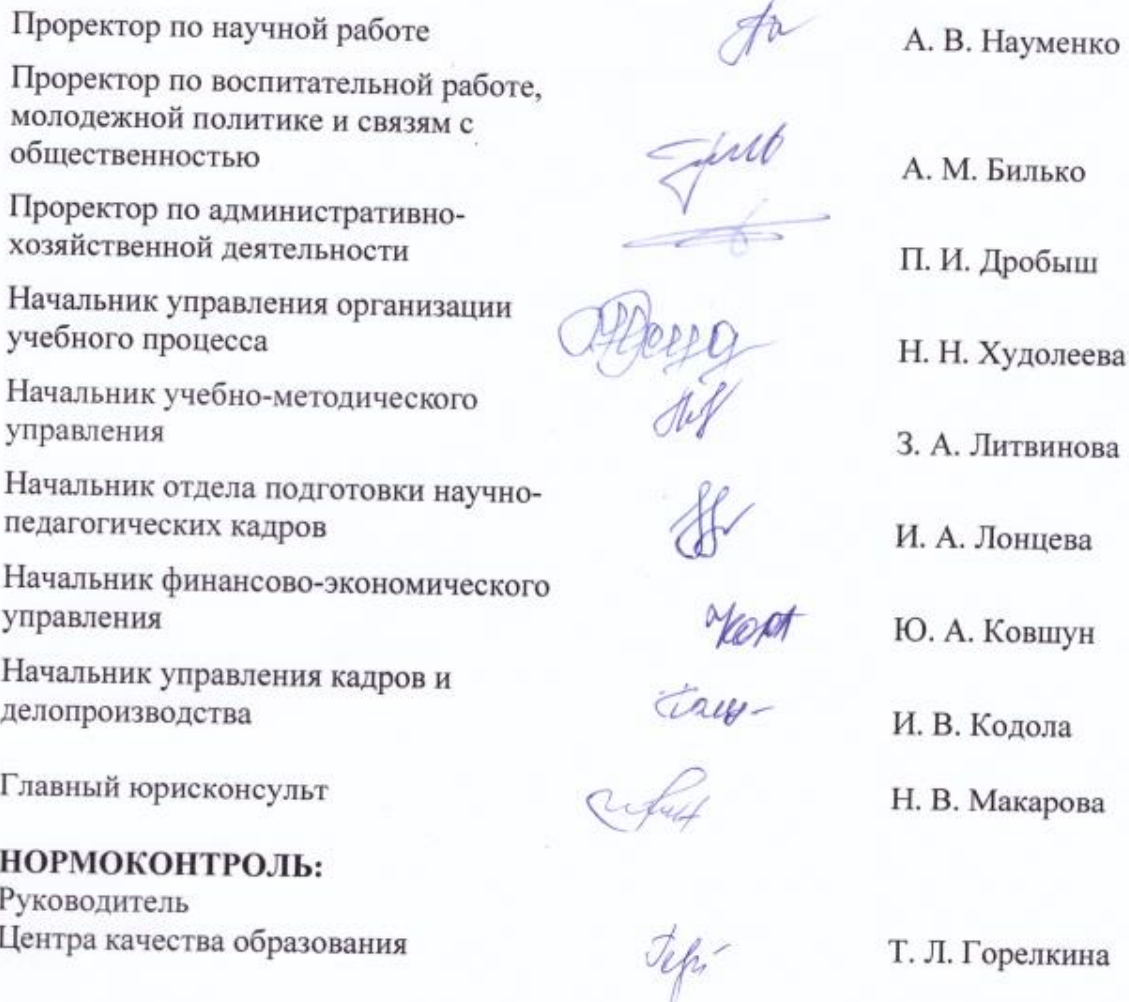 Проректор по научной работе А. В. Науменко
Проректор по воспитательной работе,
молодежной политике и связям с
общественностью А. М. Билько
Проректор по административно-
хозяйственной деятельности П. И. Дробыш
Начальник управления организации
учебного процесса Н. Н. Худолеева
Начальник учебно-методического
управления З. А. Литвинова
Начальник отдела подготовки научно-
педагогических кадров И. А. Лонцева
Начальник финансово-экономического
управления Ю. А. Ковшун
Начальник управления кадров и
делопроизводства И. В. Кодола
Главный юрисконсульт Н. В. Макарова
НОРМОКОНТРОЛЬ:
Руководитель
Центра качества образования Т. Л. Горелкина